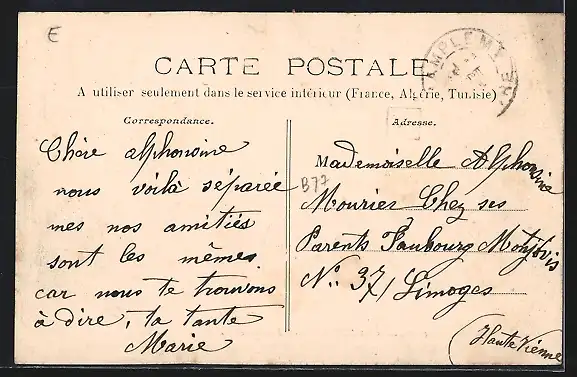 E
CARTE POSTALE
A utiliser seulement dans le service intérieur (France, Algérie, Tunisie)
Correspondance.
Chère alphonsine
nous voilà séparée
mes nos amitiés
sont les mêmes
car nous te trouvons
à dire, ta tante
Marie
B77
Adresse.
Mademoiselle Alphonsine
Mourier Chez ses
Parents Faubourg Montjovis
No. 37 / Limoges
(Haute Vienne